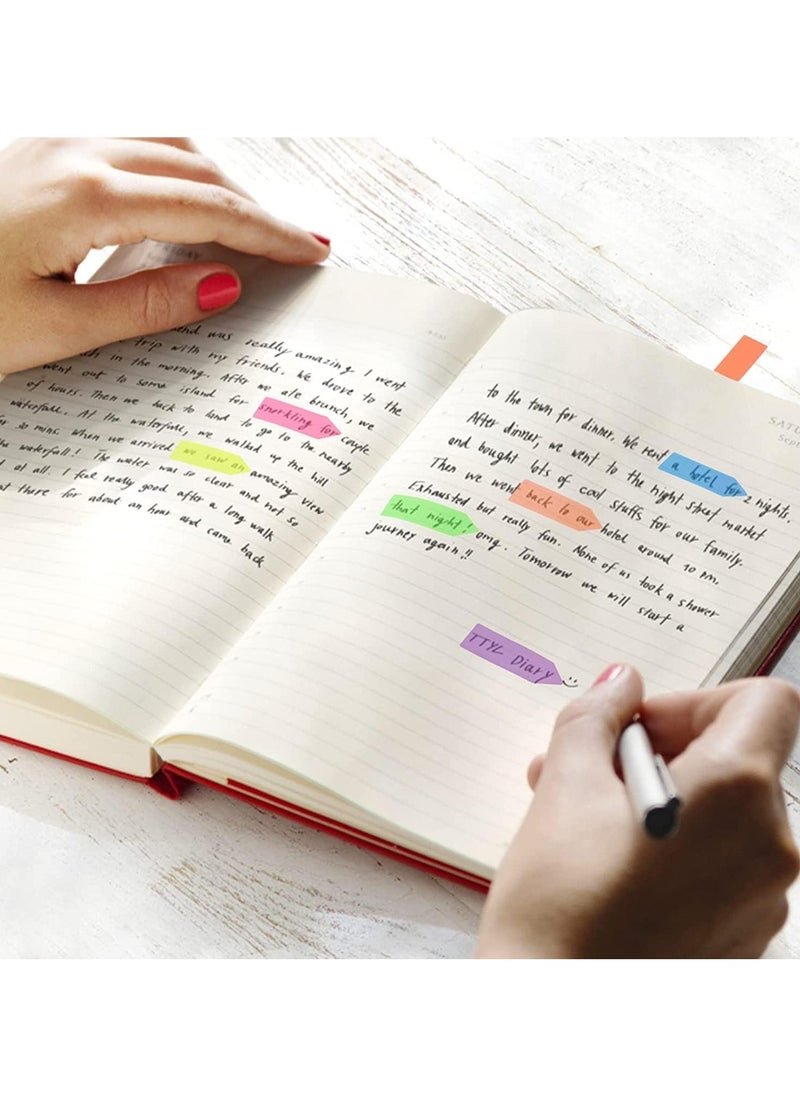 DAY
end was really amazing. I went
trip with my friends. We drove to the
in the morning. After we ate brunch, we
went out to some island for snorkling for couple
of hours. Then we back to land to go to the nearby
waterfall. At the waterfall, we walked up the hill
for 30 mins. When we arrived we saw an amazing view
the waterfall! The water was so clear and not so
at all. I feel really good after a long walk
at there for about an hour and came back
SATU
Sept
to the town for dinner. We rent a hotel for 2 nights.
After dinner, we went to the night street market
and bought lots of cool stuffs for our family.
Then we went back to our hotel around 10 pm.
Exhausted but really fun. None of us took a shower
that night! omg. Tomorrow we will start a
journey again!!
TTYL Diary :)